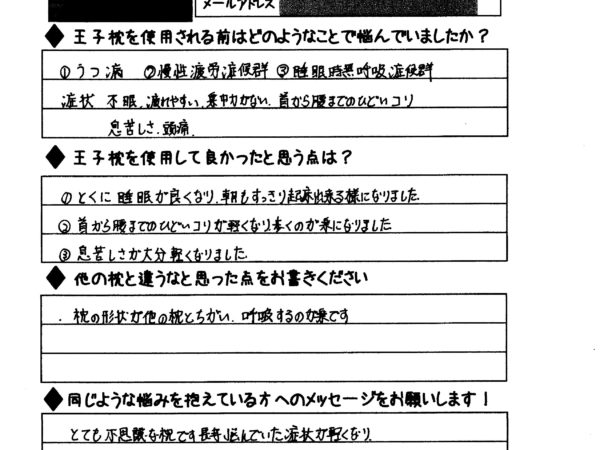 メールアドレス
◆王子枕を使用される前はどのようなことで悩んでいましたか?
①うつ病 ②慢性疲労症候群 ③睡眠時無呼吸症候群
症状 不眠、疲れやすい、集中力がない、首から腰までのひどいコリ
息苦しさ、頭痛、
◆王子枕を使用して良かったと思う点は?
①とくに睡眠が良くなり、朝もすっきり起床出来る様になりました
②首から腰までのひどいコリが軽くなり歩くのが楽になりました
③息苦しさが大分軽くなりました
◆他の枕と違うなと思った点をお書きください
・枕の形状が他の枕とちがい、呼吸するのが楽です
◆同じような悩みを抱えている方へのメッセージをお願いします!
とても不思議な枕です長年悩んでいた症状が軽くなり